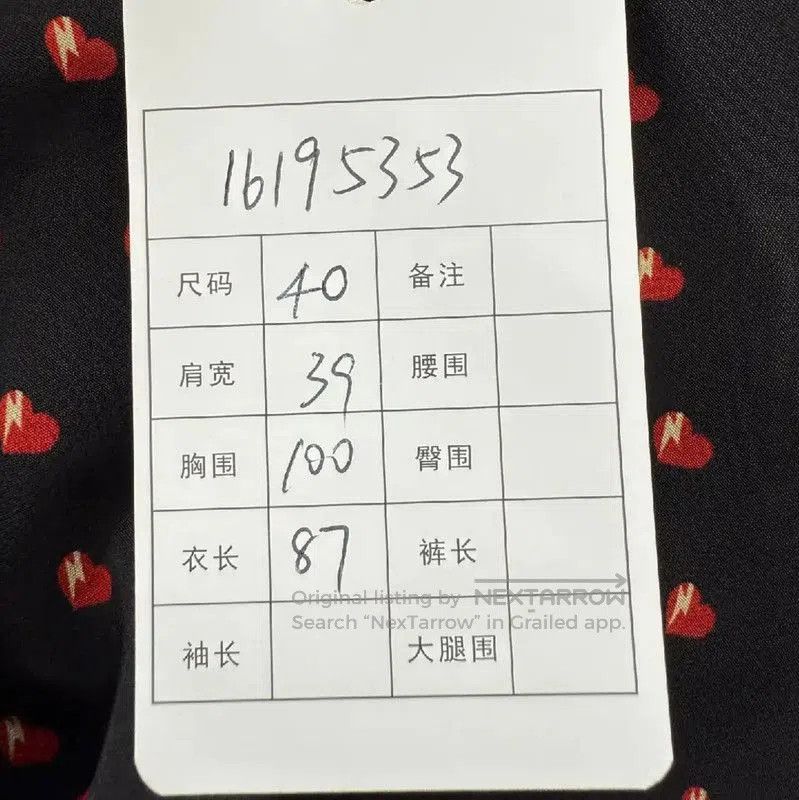 16195353
尺码 40 备注
肩宽 39 腰围
胸围 100 臀围
衣长 87 裤长
Original listing by NEXTARROW
Search “NexTarrow” in Grailed app.
袖长 大腿围